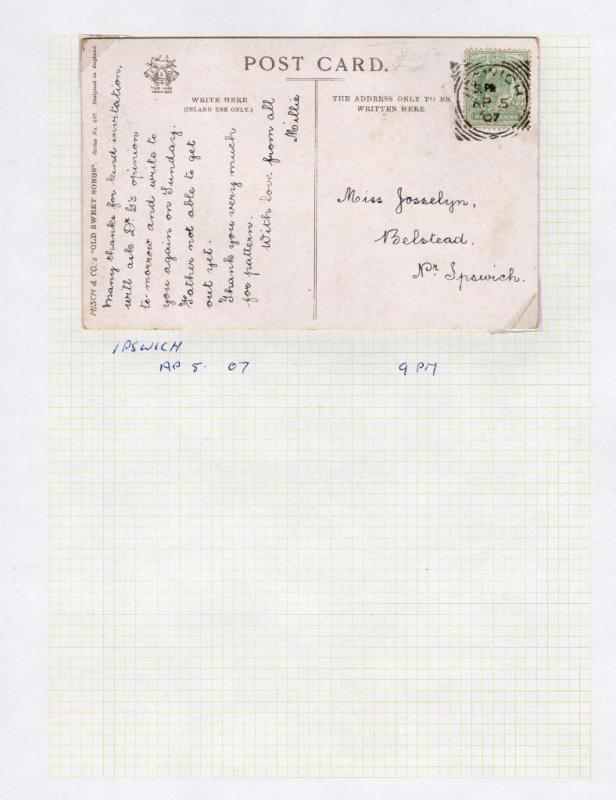 POST CARD.
WRITE HERE
(INLAND USE ONLY.)
THE ADDRESS ONLY TO BE
WRITTEN HERE.
MISCH & CO.'s "OLD SWEET SONGS". Series No. 337. Designed in England.
Many thanks for kind invitation,
will ask Dr G's opinion
to-morrow and write to
you again on Sunday.
Father not able to get
out yet.
Thank you very much
for pattern.
With love from all
Millie
Miss Josselyn,
Belstead.
Nr Ipswich.
AP 5
07
IPSWICH
AP 5. 07
9 PM